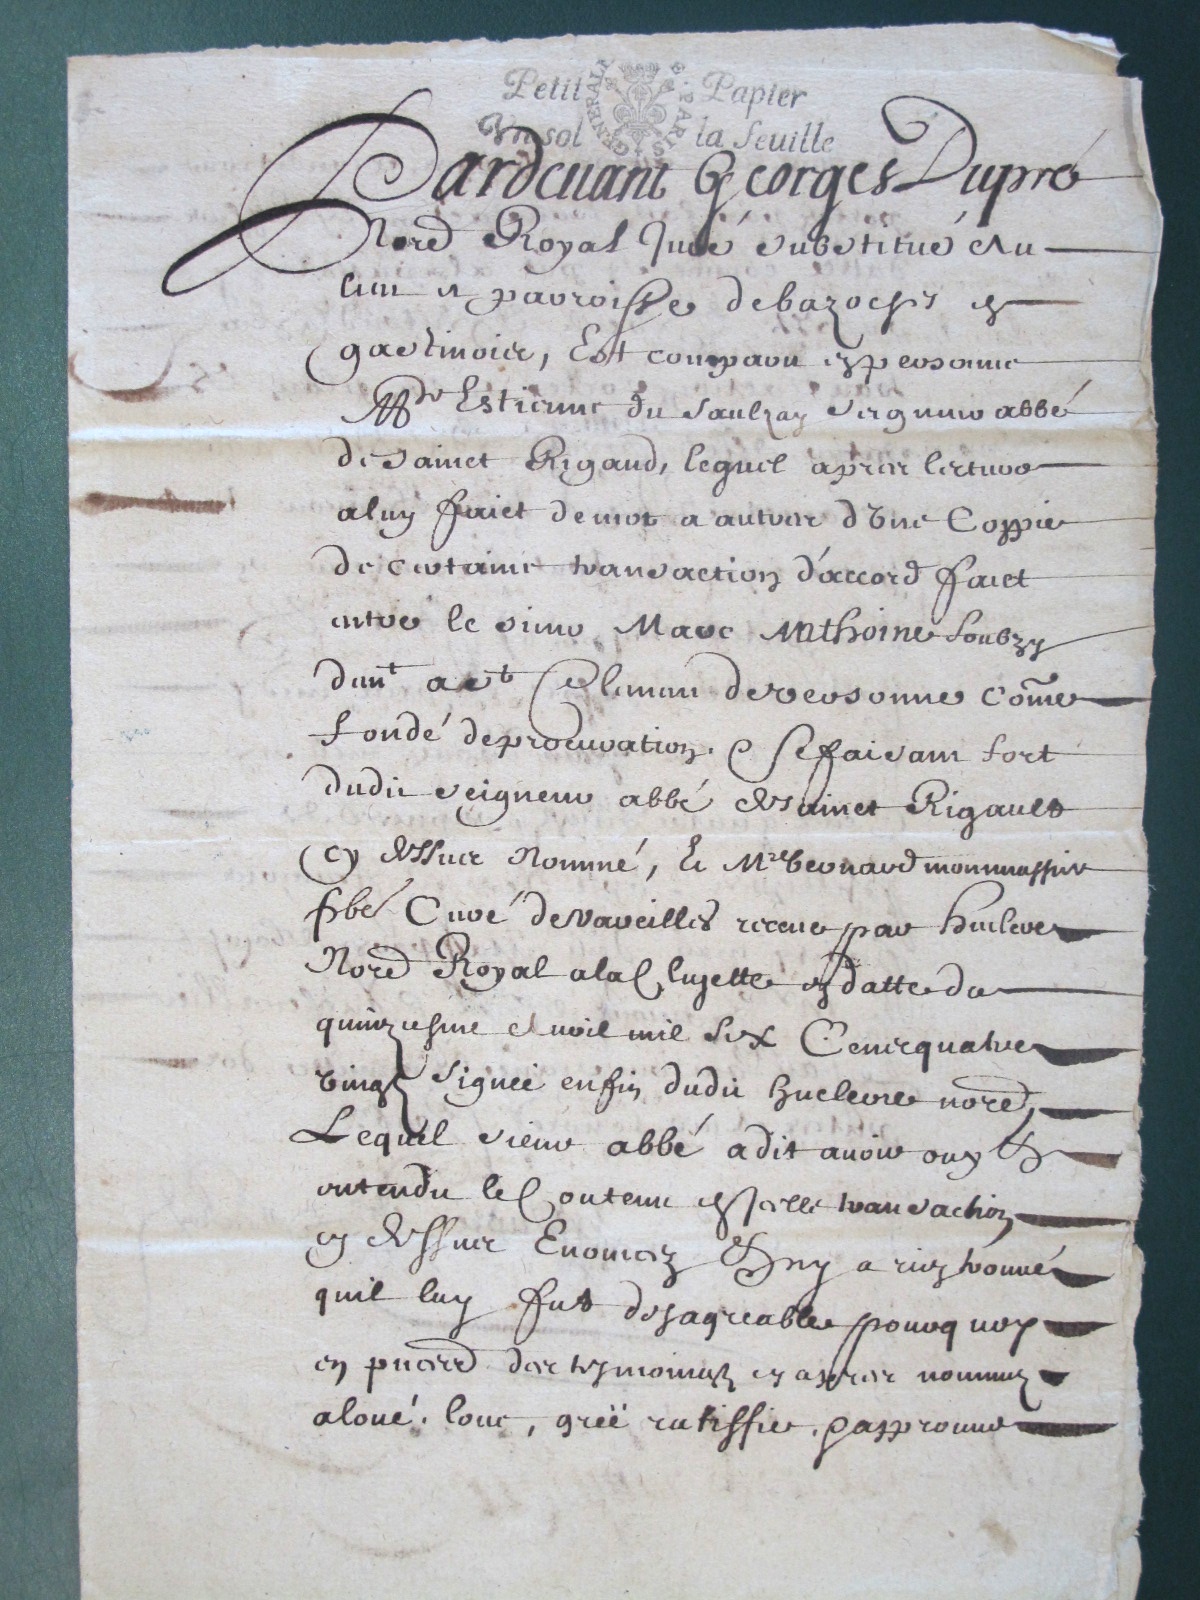 Petit Papier
Un sol la feuille
GENERALI PARIS
Pardeuant Georges Dupré
Nore Royal Juré substitué au
lieu et parroisse de bazoches en
gastinois, Est comparu en personne
Mre Estienne du Saulzay seigneur abbé
de sainct Rigaud, lequel apres lecture
a luy faict de mot a autre d'une Coppie
de certaine transaction d'accord faict
entre le sieur Marc Anthoine
demt a et de personne Cōme
fondé de procuration. & se faisant fort
dudit seigneur abbé de sainct Rigault
cy dessus Nommé, Et Mre bernard
pbre Curé de Vareilles receue par huclere
Nore Royal a la Clayette en datte du
quinziesme auril mil six Cent quatre
vingt signée enfin dudit huclere nore,
Lequel sieur abbé a dit auoir ouy &
entendu le Contenu en icelle transaction
cy dessus Enoncez & ny a rien trouué
quil luy fut desagreable pourquoy
en pnce des tesmoings cy apres nommez
aloué. loue, greé ratiffie. & approuue